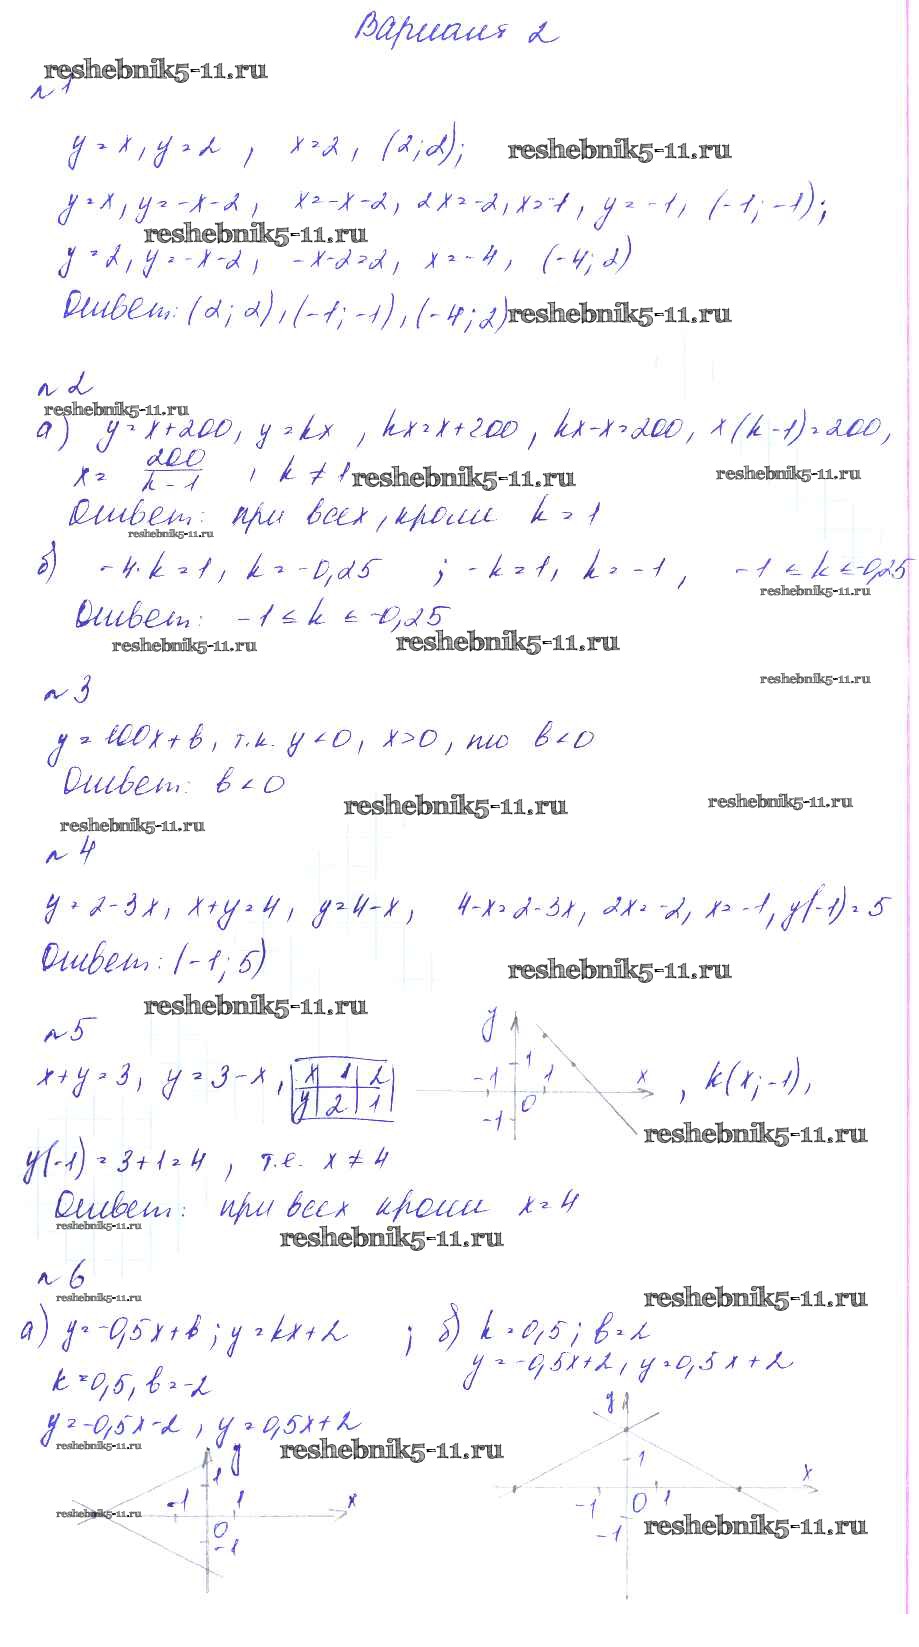 Вариант 2
reshebnik5-11.ru
№1
y=x, y=2, x=2, (2;2); reshebnik5-11.ru
y=x, y=-x-2, x=-x-2, 2x=-2, x=-1, y=-1, (-1;-1);
reshebnik5-11.ru
y=2, y=-x-2, -x-2=2, x=-4, (-4;2)
Ответ: (2;2), (-1;-1), (-4;2) reshebnik5-11.ru
№2
reshebnik5-11.ru
а) y=x+200, y=kx, kx=x+200, kx-x=200, x(k-1)=200,
x= 200/k-1, k≠1 reshebnik5-11.ru reshebnik5-11.ru
Ответ: при всех, кроме k=1
reshebnik5-11.ru
б) -4·k=1, k=-0,25 ; -k=1, k=-1, -1≤k≤-0,25
reshebnik5-11.ru
Ответ: -1≤k≤-0,25
reshebnik5-11.ru reshebnik5-11.ru
reshebnik5-11.ru
№3
y=100x+b, т.к. y<0, x>0, то b<0
Ответ: b<0
reshebnik5-11.ru reshebnik5-11.ru
reshebnik5-11.ru
№4
y=2-3x, x+y=4, y=4-x, 4-x=2-3x, 2x=-2, x=-1, y(-1)=5
Ответ: (-1;5)
reshebnik5-11.ru
reshebnik5-11.ru
№5
x+y=3, y=3-x, x 1 2
y 2 1
y 1 -1 x 0 1 -1
, k(x;-1),
reshebnik5-11.ru
y(-1)=3+1=4, т.е. x≠4
Ответ: при всех кроме x=4
reshebnik5-11.ru
reshebnik5-11.ru
№6
reshebnik5-11.ru reshebnik5-11.ru
а) y=-0,5x+b; y=kx+2 ; б) k=0,5; b=2
y=-0,5x+2, y=0,5x+2
k=0,5, b=-2
y=-0,5x-2, y=0,5x+2
reshebnik5-11.ru reshebnik5-11.ru
y 1 -1 1 x 0 -1
reshebnik5-11.ru
y 1 x -1 0 1 -1
reshebnik5-11.ru